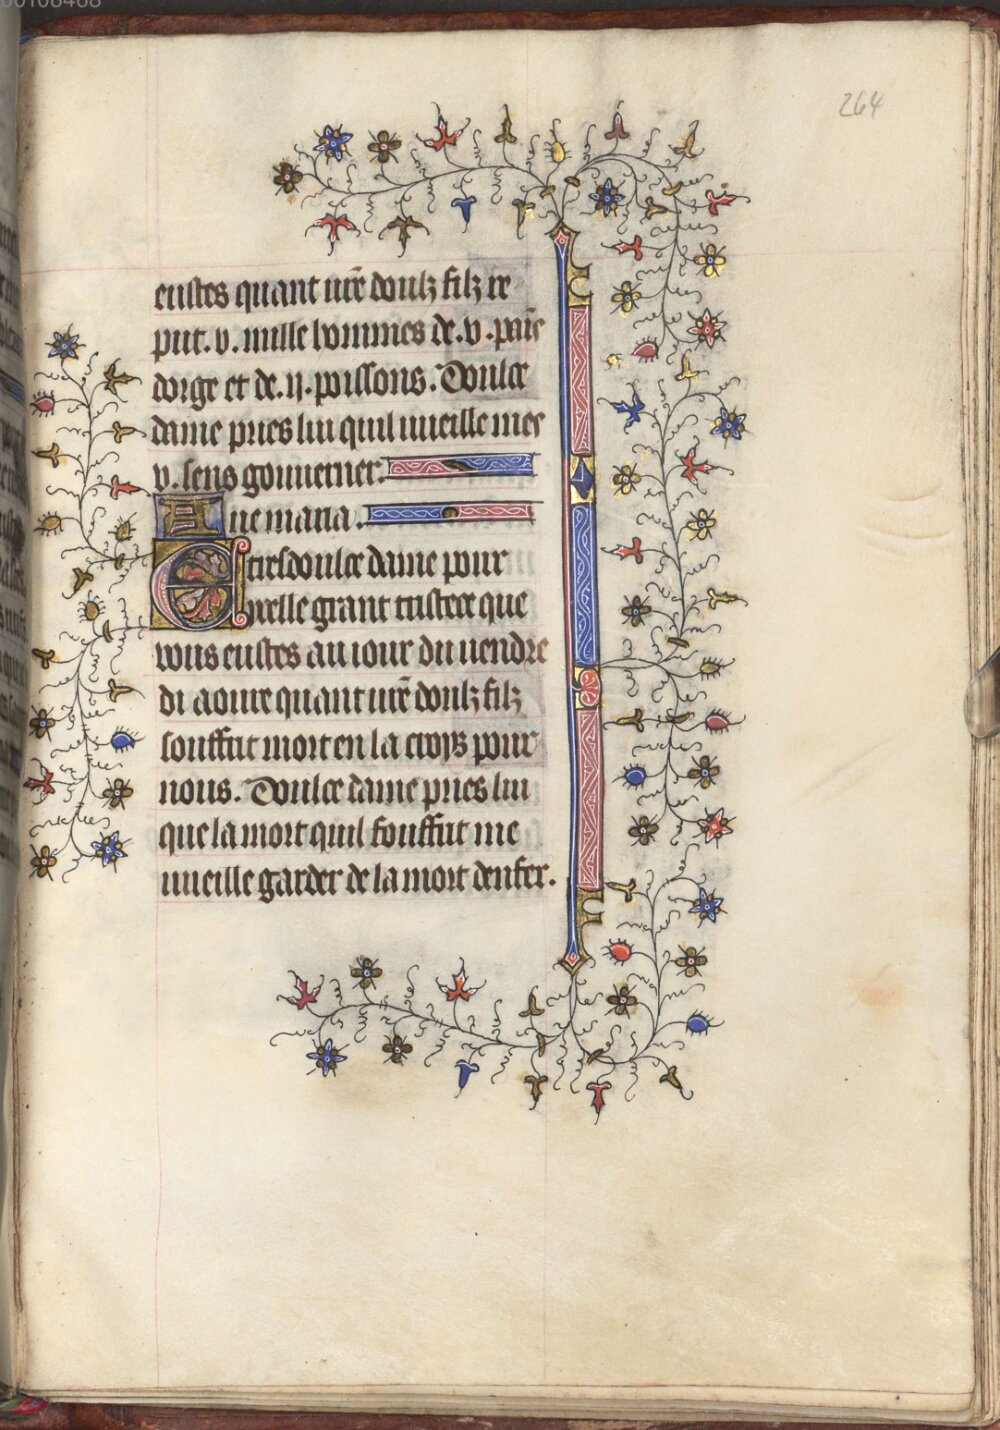 00108468
264
eustes quant ure̅ doulz filz re
put .v. mille hommes de .v. pais̅
dorge et de .ii. poissons. Doulce
dame pries lui quil uueille mes
v. sens gouuerner.
Aue maria.
E tresdoulce dame pour
ycelle grant tristece que
vous eustes au iour du uendre
di aoure quant ure̅ doulz filz
souffrit mort en la croys pour
nous. Doulce dame pries lui
que la mort quil souffrit me
uueille garder de la mort denfer.